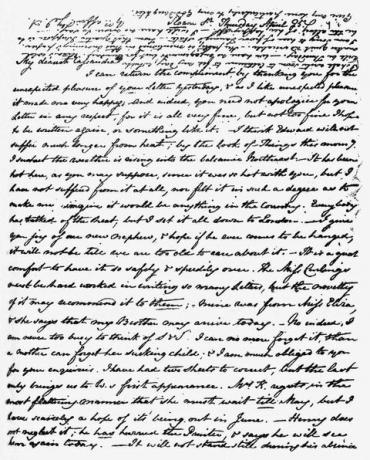 Sloane St. Thursday April 25.
My dearest Cassandra
I can return the compliment by thanking you for the
unexpected pleasure of your Letter yesterday, & as I like unexpected pleasure,
it made me very happy; And indeed, you need not apologise for your
Letter in any respect, for it is all very fine, but not too fine I hope
to be written again, or something like it. I think Edward will not
suffer much longer from heat; by the look of Things this morng
I suspect the weather is rising into the balsamic Northeast. It has been
hot here, as you may suppose, since it was so hot with you, but I
have not suffered from it at all, nor felt it in such a degree as to
make me imagine it would be anything in the Country. Everybody
has talked of the heat, but I set it all down to London. — I give
you joy of our new nephew, & hope if he ever comes to be hanged,
it will not be till we are too old to care about it. — It is a great
comfort to have it so safely & speedily over. The Miss Curlings
must be hard worked in writing so many Letters, but the novelty
of it may recommend it to them; — mine was from Miss Eliza,
& she says that my Brother may arrive today. — No indeed, I
am never too busy to think of S & S. I can no more forget it, than
a mother can forget her sucking child; & I am much obliged to you
for your enquiries. I have had two sheets to correct, but the last
only brings us to W.s first appearance. Mrs K. regrets in the
most flattering manner that she must wait till May, but I
have scarcely a hope of its being out in June. — Henry does
not neglect it; he has hurried the Printer, & says he will see
him again today. — It will not stand still during his absence